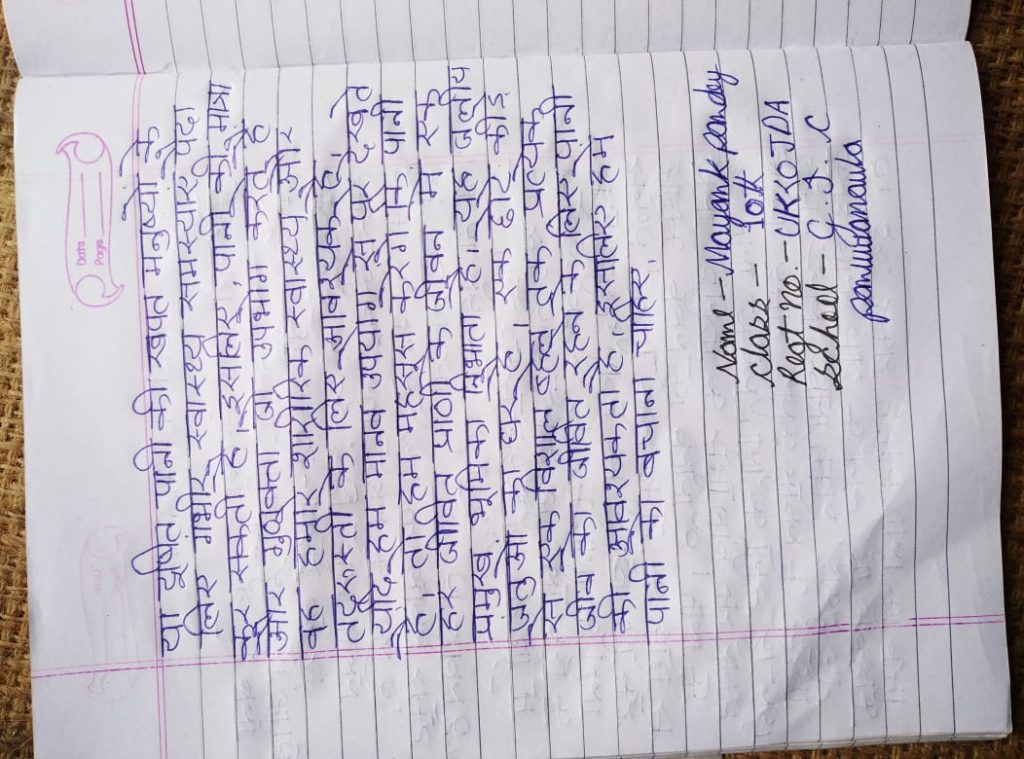 Date
Page
या दूषित पानी की खपत मनुष्यों के
लिए गंभीर स्वास्थ्य समस्याएं पैदा
कर सकती है। इसलिए, पानी की मात्रा
और गुणवत्ता जो उपभोग करते है
वह हमारे शारीरिक स्वास्थ्य और
तंदरुस्ती के लिए आवश्यक है।
यदि हम मानव उपयोग से परे देखते
है, तो हम महसूस करेंगे कि पानी
हर जीवित प्राणी के जीवन में एक
प्रमुख भूमिका निभाता है। यह जलीय
जंतुओं का घर है। एक छोटे कीड़े
से एक विशाल व्हेल तक प्रत्येक
जीव को जीवित रहने के लिए पानी
की आवश्यकता है। इसलिए हमे
पानी को बचाना चाहिए,
Name - Mayank panday
Class - 10th
Regt No. - UKKOJDA
School - G.I.C
panuwanaula